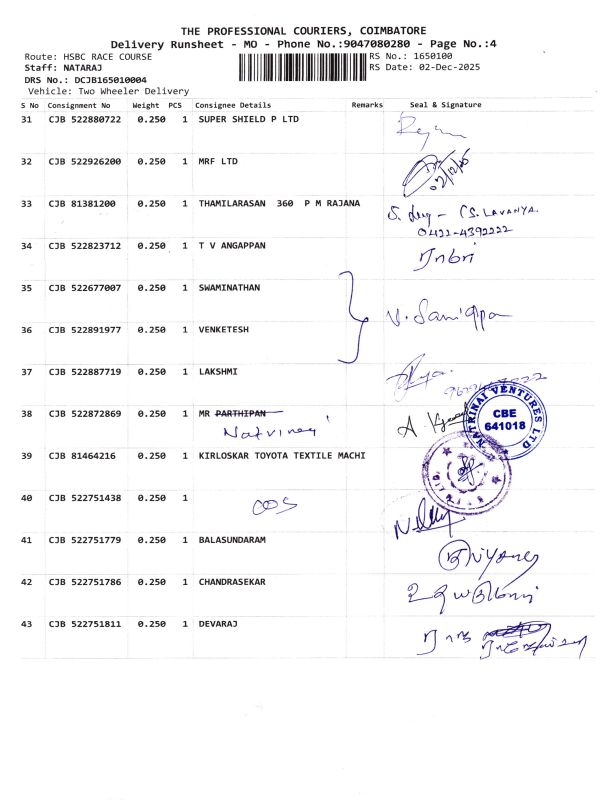 THE PROFESSIONAL COURIERS, COIMBATORE
Delivery Runsheet - MO - Phone No.:9047080280 - Page No.:4
Route: HSBC RACE COURSE RS No.: 1650100
Staff: NATARAJ RS Date: 02-Dec-2025
DRS No.: DCJB165010004
Vehicle: Two Wheeler Delivery
S No Consignment No Weight PCS Consignee Details Remarks Seal & Signature
31 CJB 522880722 0.250 1 SUPER SHIELD P LTD
32 CJB 522926200 0.250 1 MRF LTD
02/12/25
33 CJB 81381200 0.250 1 THAMILARASAN 360 P M RAJANA
(S. LAVANYA.
0422-4392222
34 CJB 522823712 0.250 1 T V ANGAPPAN
35 CJB 522677007 0.250 1 SWAMINATHAN
36 CJB 522891977 0.250 1 VENKETESH
37 CJB 522887719 0.250 1 LAKSHMI
38 CJB 522872869 0.250 1 MR PARTHIPAN
NATRINAI VENTURES LTD
CBE
641018
39 CJB 81464216 0.250 1 KIRLOSKAR TOYOTA TEXTILE MACHI
40 CJB 522751438 0.250 1
41 CJB 522751779 0.250 1 BALASUNDARAM
42 CJB 522751786 0.250 1 CHANDRASEKAR
43 CJB 522751811 0.250 1 DEVARAJ